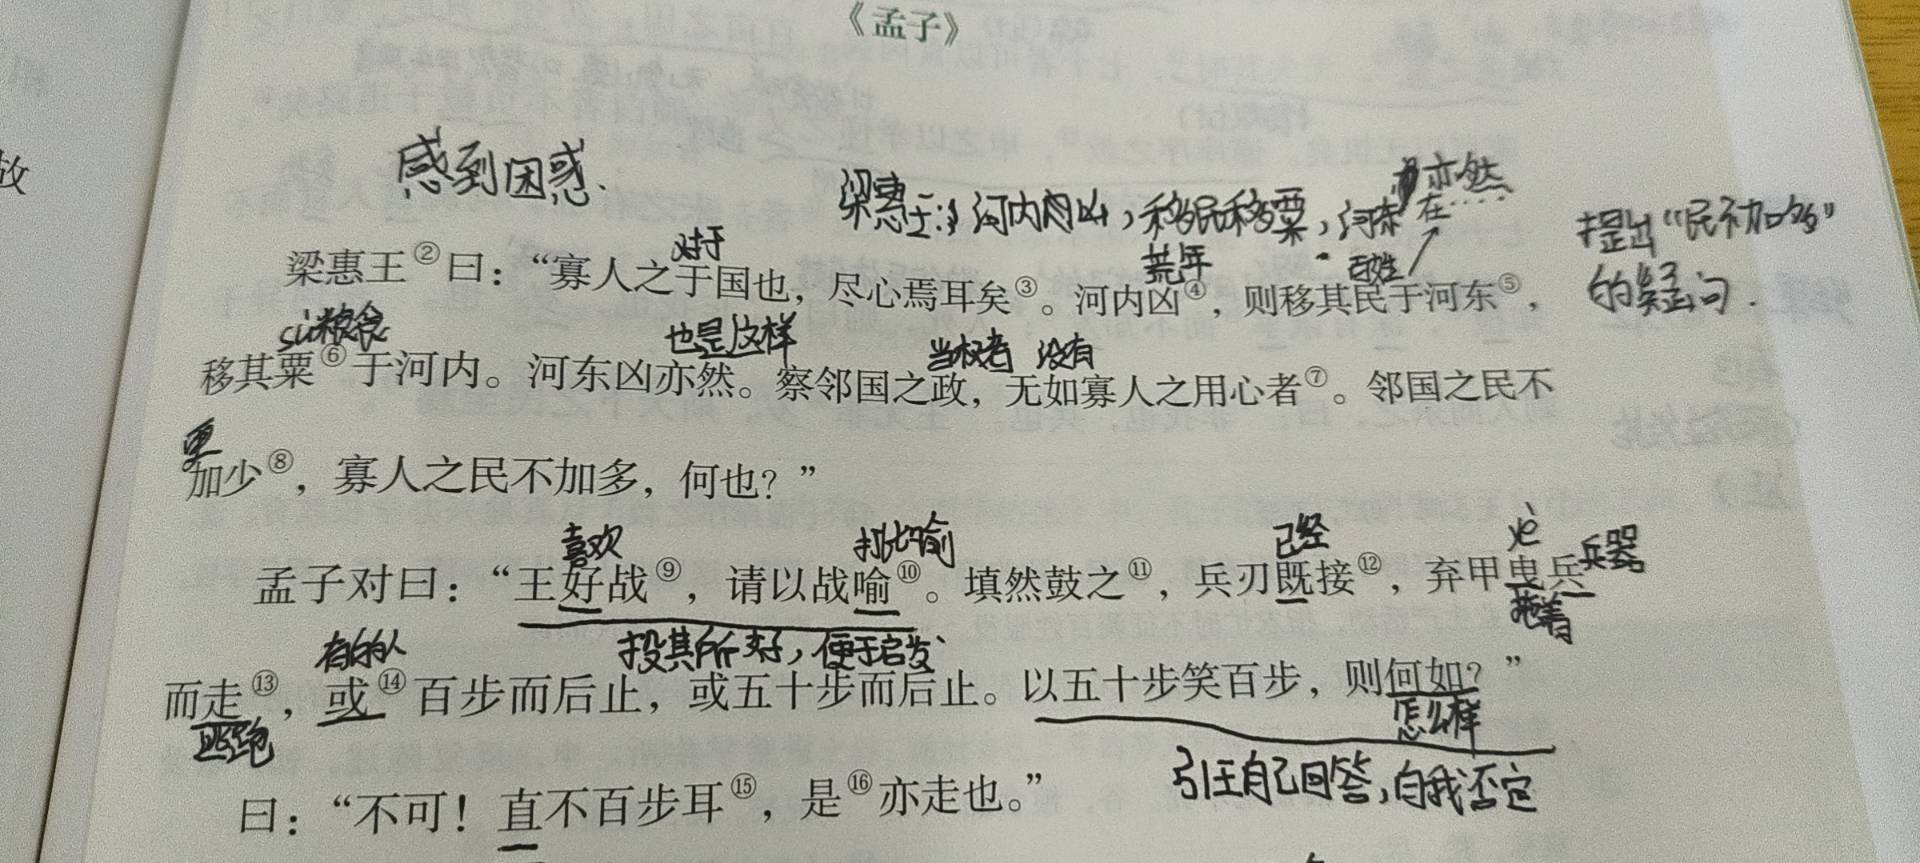 《孟子》
感到困惑.
梁惠王: 河内凶，移民移粟，河东亦然
提出“民不加多”
的疑问.
对于
荒年
百姓
在
梁惠王②曰：“寡人之于国也，尽心焉耳矣③。河内凶④，则移其民于河东⑤，
sù粮食
也是这样
当权者 没有
移其粟⑥于河内。河东凶亦然。察邻国之政，无如寡人之用心者⑦。邻国之民不
更
加少⑧，寡人之民不加多，何也？”
喜欢
打比喻
已经
yè
兵器
孟子对曰：“王好战⑨，请以战喻⑩。填然鼓之⑪，兵刃既接⑫，弃甲曳兵
拖着
有的人
投其所好，便于启发
而走⑬，或⑭百步而后止，或五十步而后止。以五十步笑百步，则何如？”
逃跑
怎么样
引王自己回答，自我否定
曰：“不可！直不百步耳⑮，是⑯亦走也。”